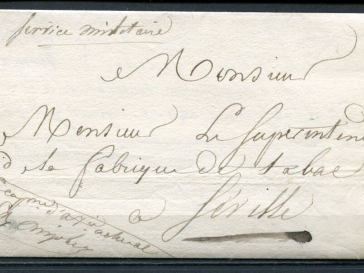 Service militaire
Monsieur
Monsieur Le Superinten
de la fabrique de tabac
a Séville